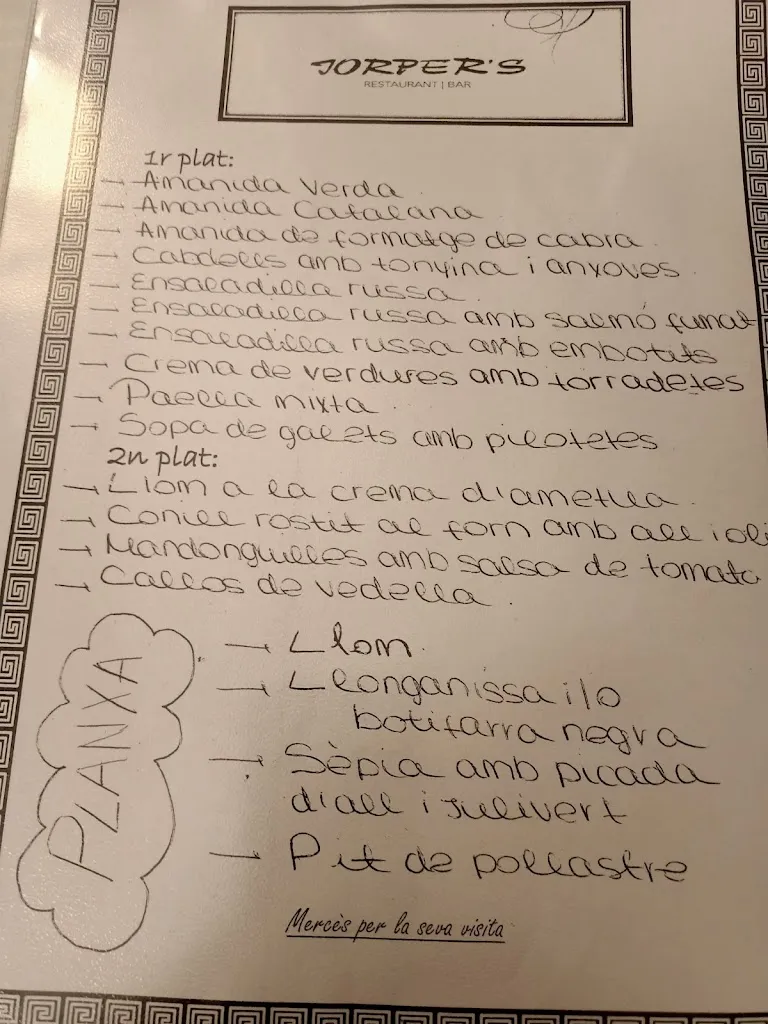 JORPER'S
RESTAURANT | BAR
1r plat:
- Amanida verda
- Amanida Catalana
- Amanida de formatge de cabra
- Cabdells amb tonyina i anxoves
- Ensaladilla russa
- Ensaladilla russa amb salmó fumat
- Ensaladilla russa amb embotits
- Crema de verdures amb torradetes
- Paella mixta
- Sopa de galets amb pilotetes
2n plat:
- Llom a la crema d'ametlla
- Conill rostit al forn amb all i oli
- Mandonguilles amb salsa de tomata
- Callos de vedella
PLANXA
- Llom
- Llonganissa i/o
botifarra negra
- Sèpia amb picada
d'all i julivert
- Pit de pollastre
Mercès per la seva visita